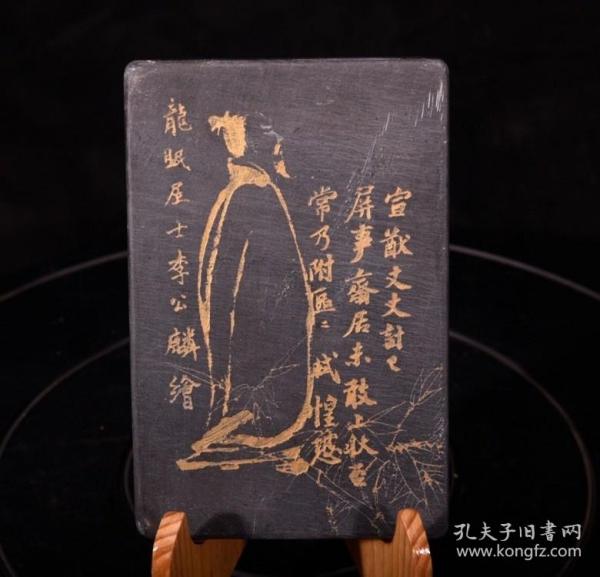 宣猷丈丈討了
屏事齋居未敢上狀至
常乃附區〻 軾惶恐
龍眠居士李公麟繪
孔夫子旧書网
www.kongfz.com